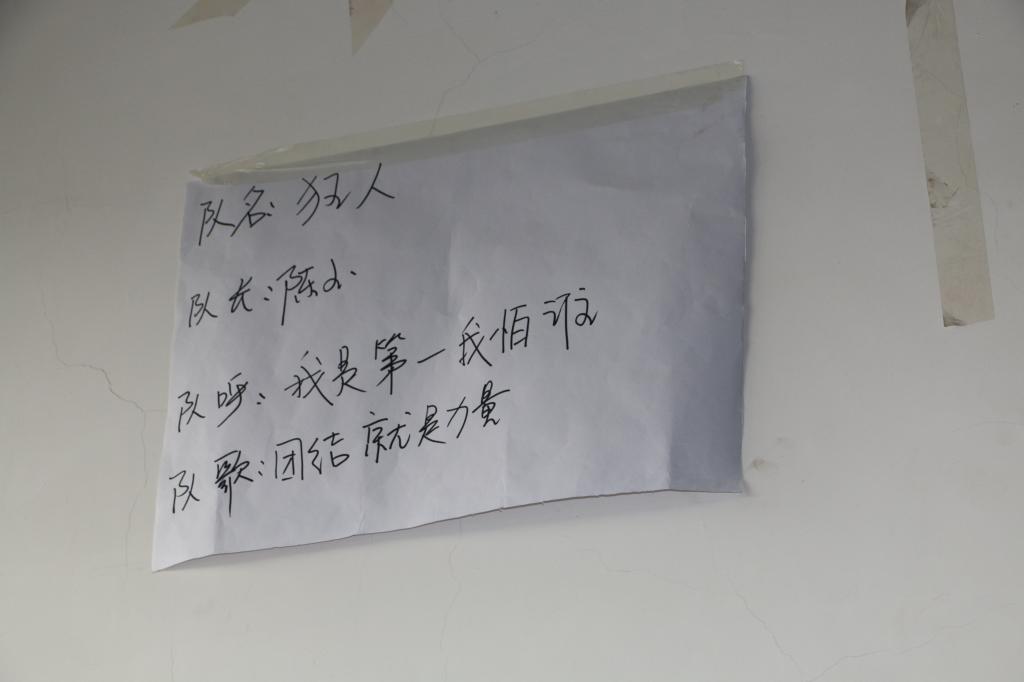 队名:狂人
队长:陈小
队呼:我是第一我怕谁
队歌:团结就是力量